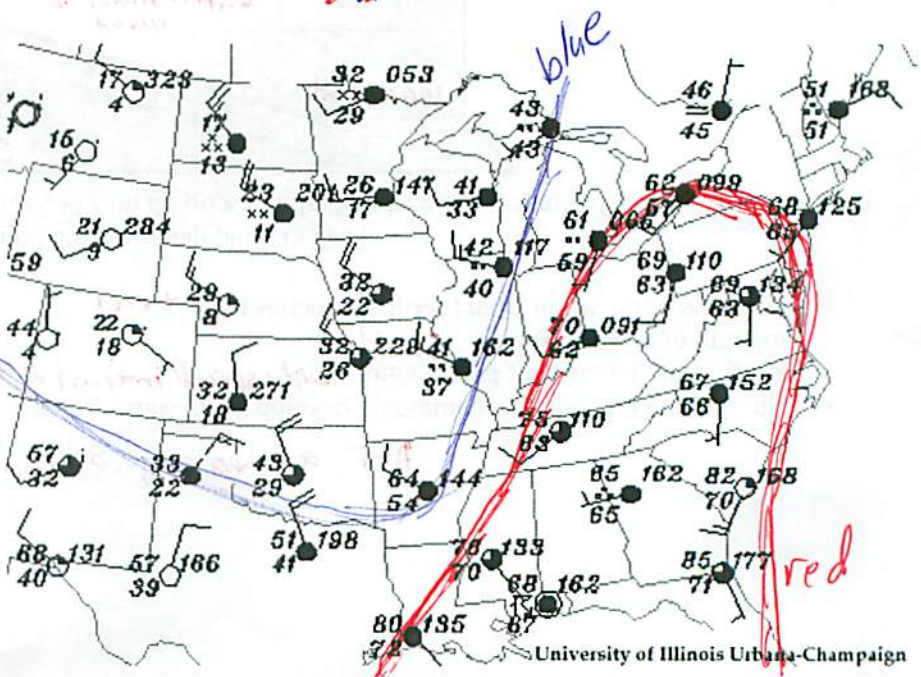 blue
17 323
4
32 053
29
17
13
16
6
43
43
46
45
51 168
51
23 204
11
26 147
17
41
33
62 099
57
68 125
65
21 284
9
59
42 117
40
61 006
59
69 110
63
69 134
63
29
8
32
22
44
4
22
18
32 220
26
41 162
37
70 091
62
32 271
18
67 152
66
75 110
63
57
32
33
22
43
29
64 144
54
65 162
65
82 168
70
51 198
41
68 131
40
57 166
39
76 133
70
68 162
67
85 177
71
red
80 135
72
University of Illinois Urbana-Champaign